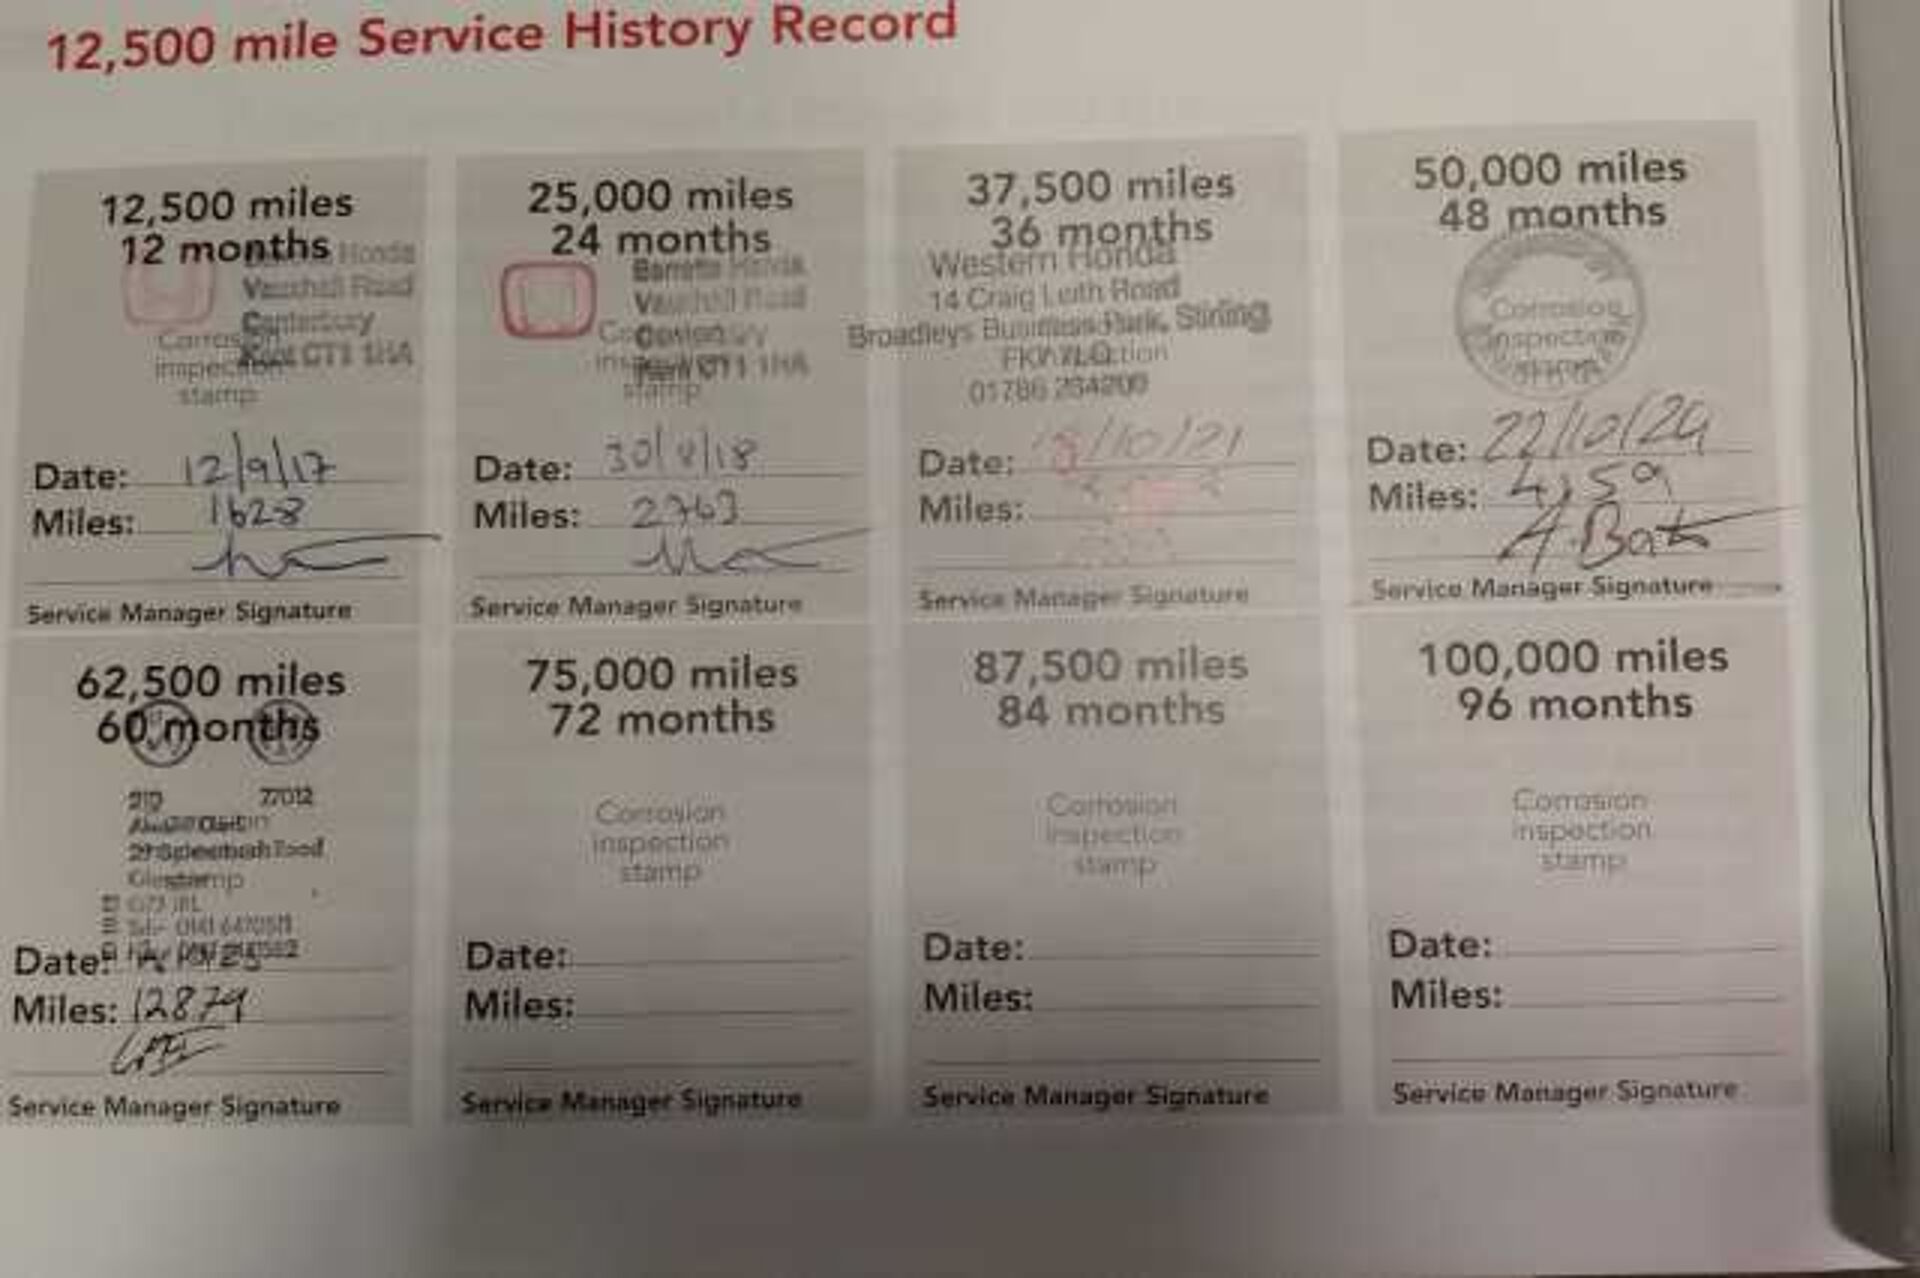 12,500 mile Service History Record
12,500 miles
12 months
Honda
Vauxhall Road
Canterbury
Kent CT1 1HA
Corrosion
inspection
stamp
Date: 12/9/17
Miles: 1628
Service Manager Signature
25,000 miles
24 months
Barretts Honda
Vauxhall Road
Canterbury
Kent CT1 1HA
Corrosion
inspection
stamp
Date: 30/8/18
Miles: 2763
Service Manager Signature
37,500 miles
36 months
Western Honda
14 Craig Leith Road
Broadleys Business Park, Stirling
FK7 7LQ
01786 264200
Date: /10/21
Miles:
Service Manager Signature
50,000 miles
48 months
Corrosion
inspection
stamp
Date: 22/10/20
Miles: 4159
Service Manager Signature
62,500 miles
60 months
77012
Date:
Miles: 12879
Service Manager Signature
75,000 miles
72 months
Corrosion
inspection
stamp
Date:
Miles:
Service Manager Signature
87,500 miles
84 months
Corrosion
inspection
stamp
Date:
Miles:
Service Manager Signature
100,000 miles
96 months
Corrosion
inspection
stamp
Date:
Miles:
Service Manager Signature